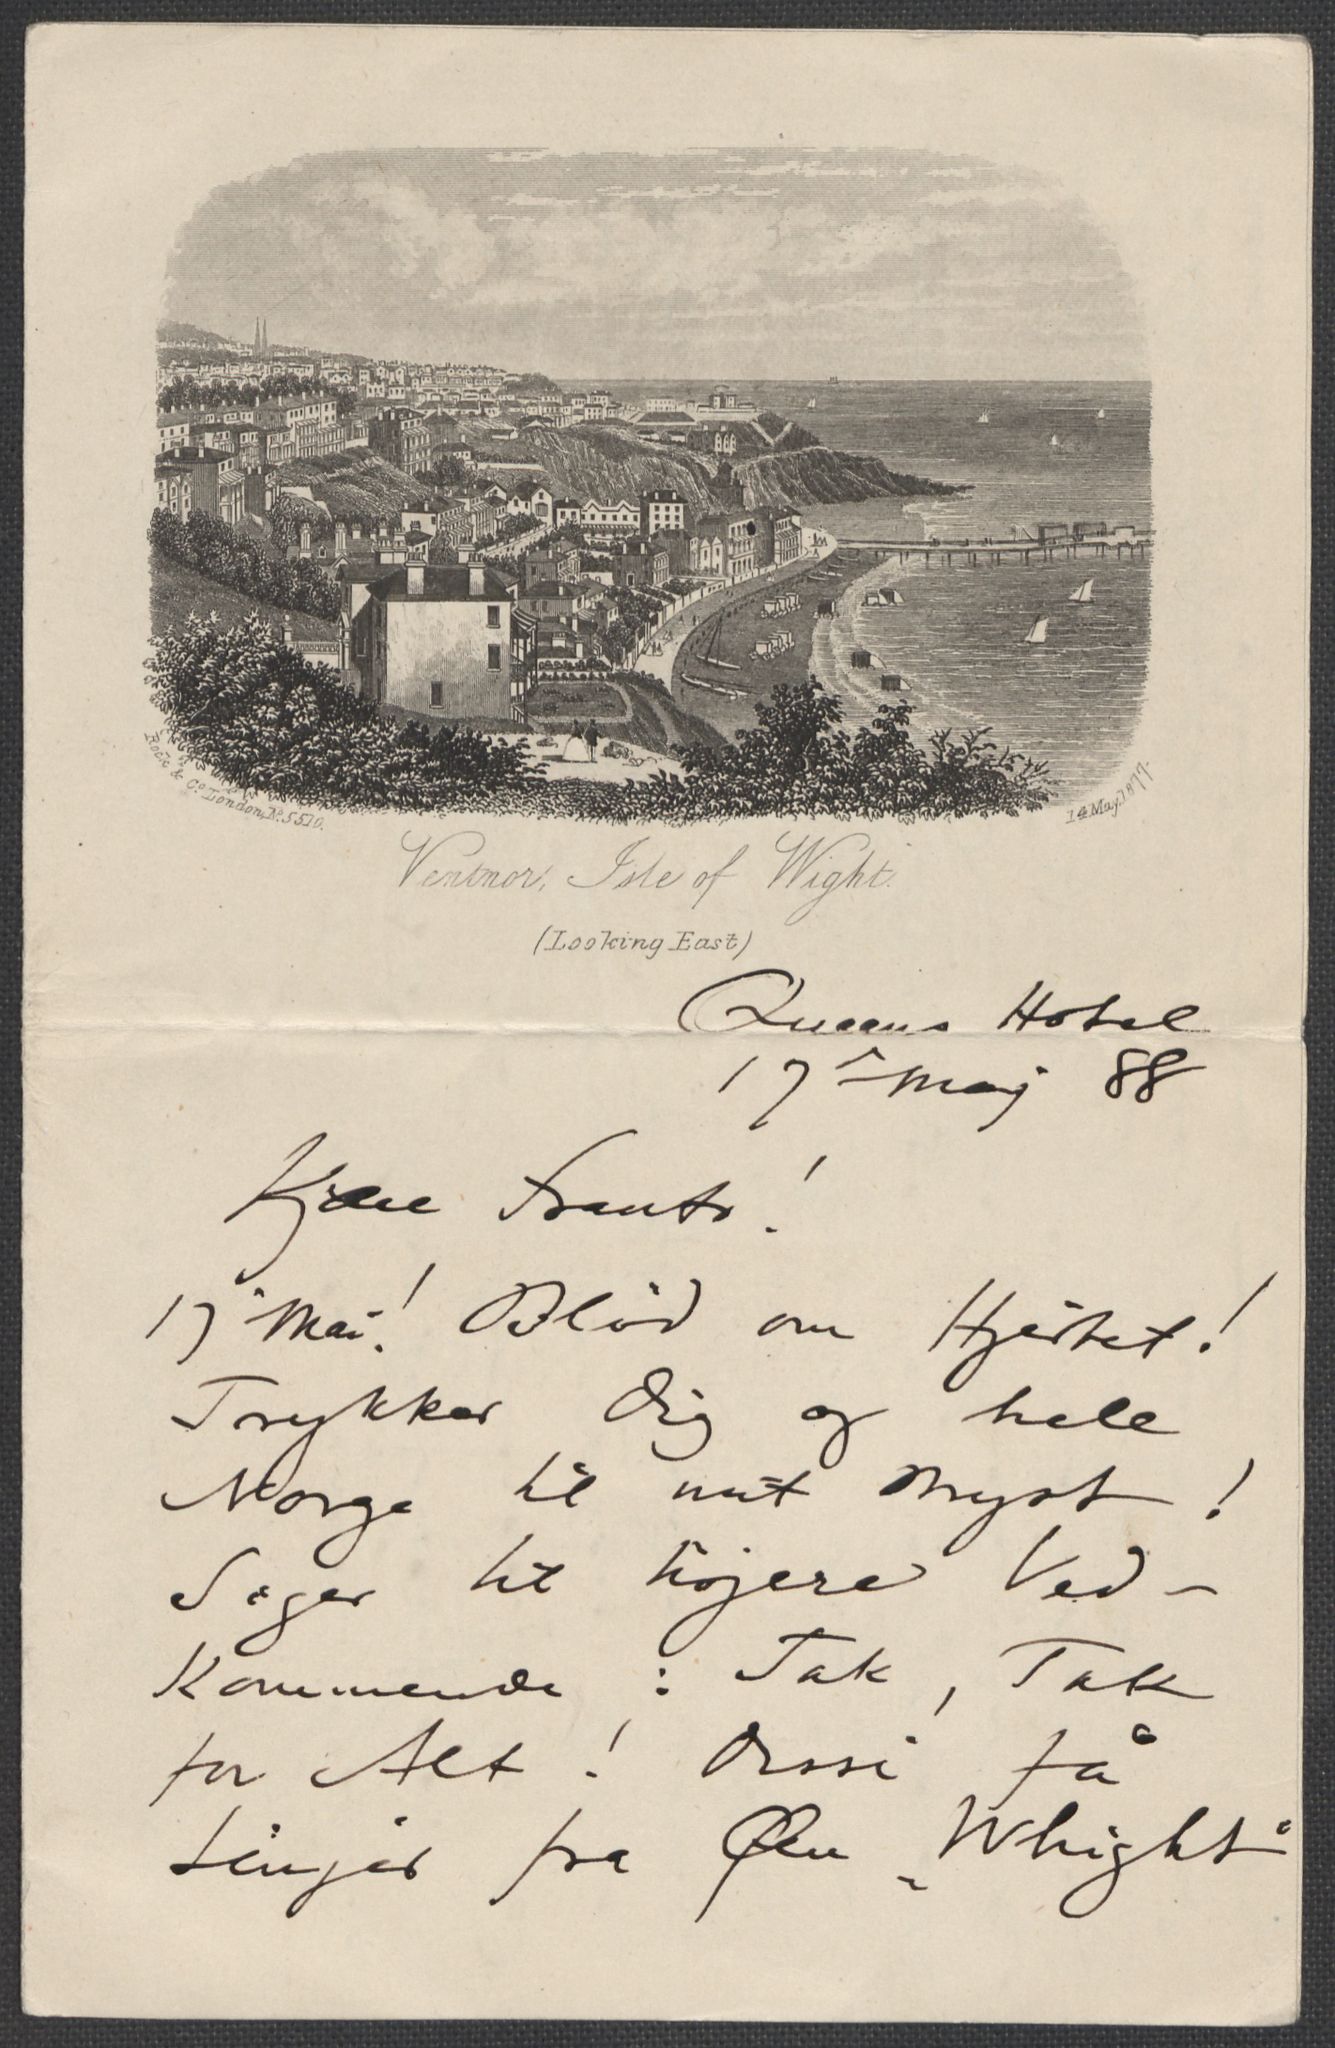 Rock & Co. London, No. 5510.
14 May 1877.
Ventnor, Isle of Wight.
(Looking East)
Queens Hotel
17de Maj 88
Kjære Frants!
17de Mai! Blöd om Hjertet!
Trykker Dig og hele
Norge til mit Bryst!
Siger til höjere Ved-
kommende: Tak, Tak
for Alt! Disse få
Linjer fra Øen „Whight"